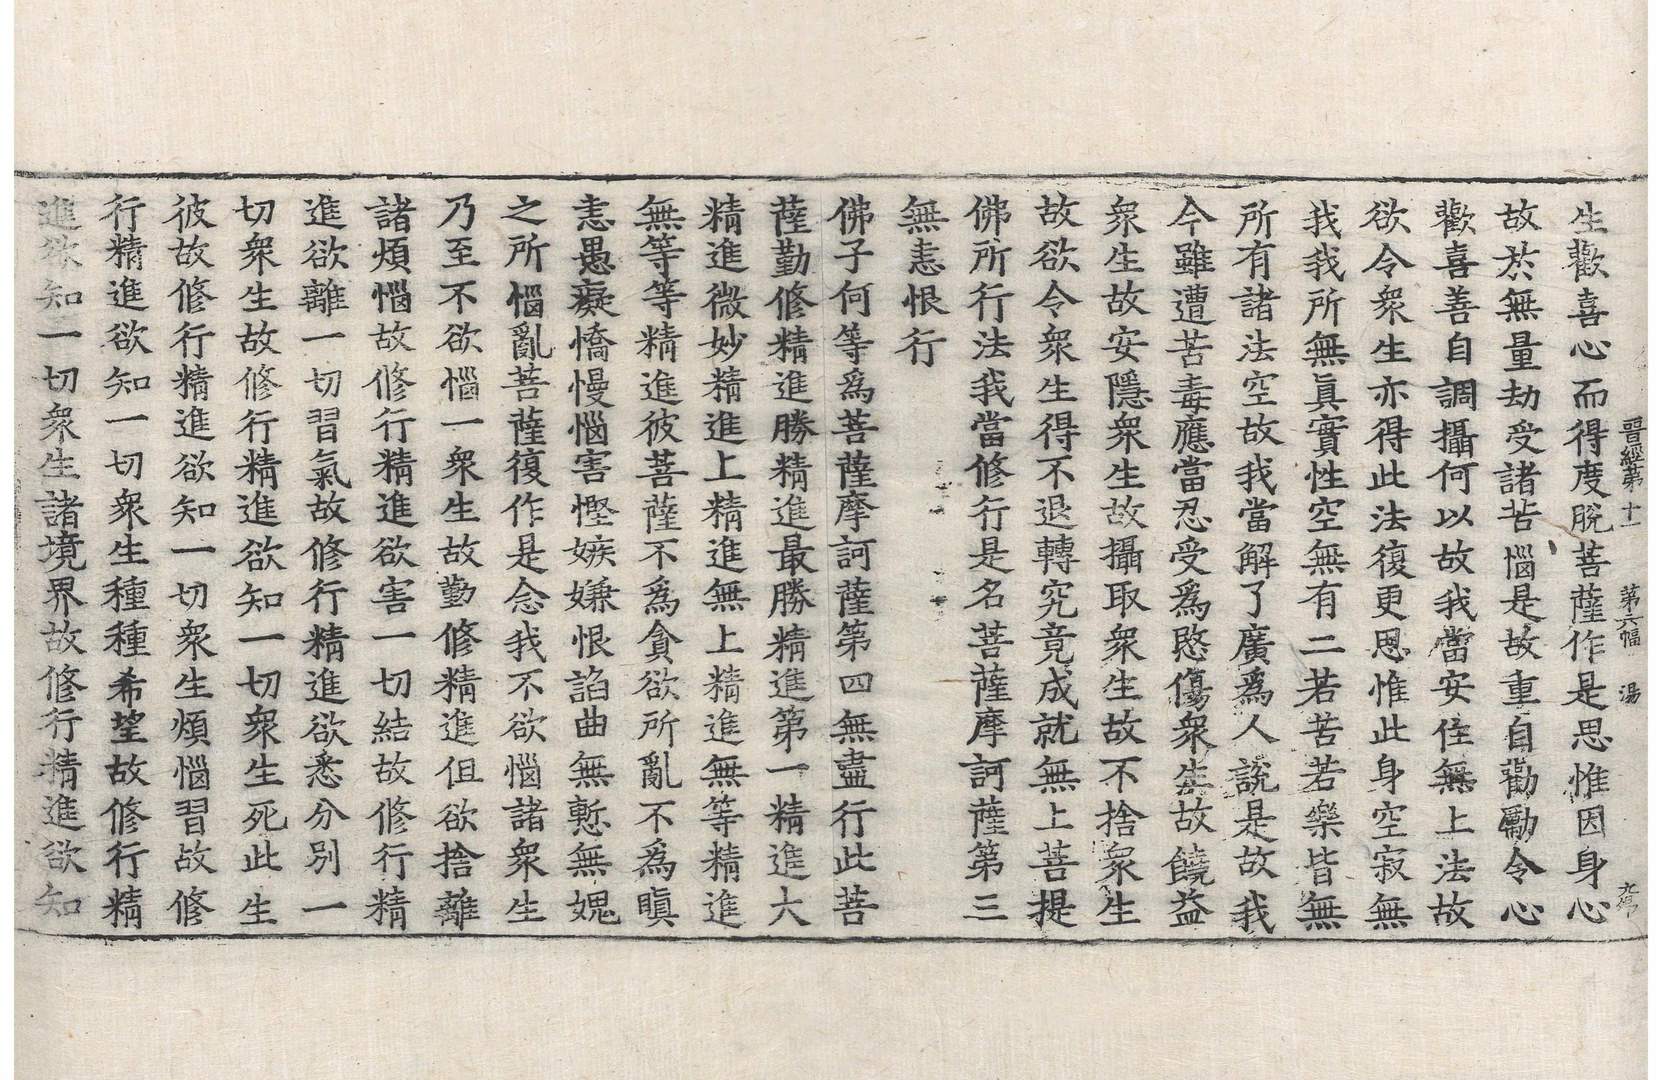 晋經第十一 第六幅 湯
生歡喜心而得度脫菩薩作是思惟因身心
故於無量劫受諸苦惱是故重自勸勵令心
歡喜善自調攝何以故我當安住無上法故
欲令衆生亦得此法復更思惟此身空寂無
我我所無眞實性空無有二若苦若樂皆無
所有諸法空故我當解了廣爲人說是故我
今雖遭苦毒應當忍受爲愍傷衆生故饒益
衆生故安隱衆生故攝取衆生故不捨衆生
故欲令衆生得不退轉究竟成就無上菩提
佛所行法我當修行是名菩薩摩訶薩第三
無恚恨行
佛子何等爲菩薩摩訶薩第四無盡行此菩
薩勤修精進勝精進最勝精進第一精進大
精進微妙精進上精進無上精進無等精進
無等等精進彼菩薩不爲貪欲所亂不爲瞋
恚愚癡憍慢惱害慳嫉嫌恨諂曲無慙無愧
之所惱亂菩薩復作是念我不欲惱諸衆生
乃至不欲惱一衆生故勤修精進但欲捨離
諸煩惱故修行精進欲害一切結故修行精
進欲離一切習氣故修行精進欲悉分別一
切衆生故修行精進欲知一切衆生死此生
彼故修行精進欲知一切衆生煩惱習故修
行精進欲知一切衆生種種希望故修行精
進欲知一切衆生諸境界故修行精進欲知